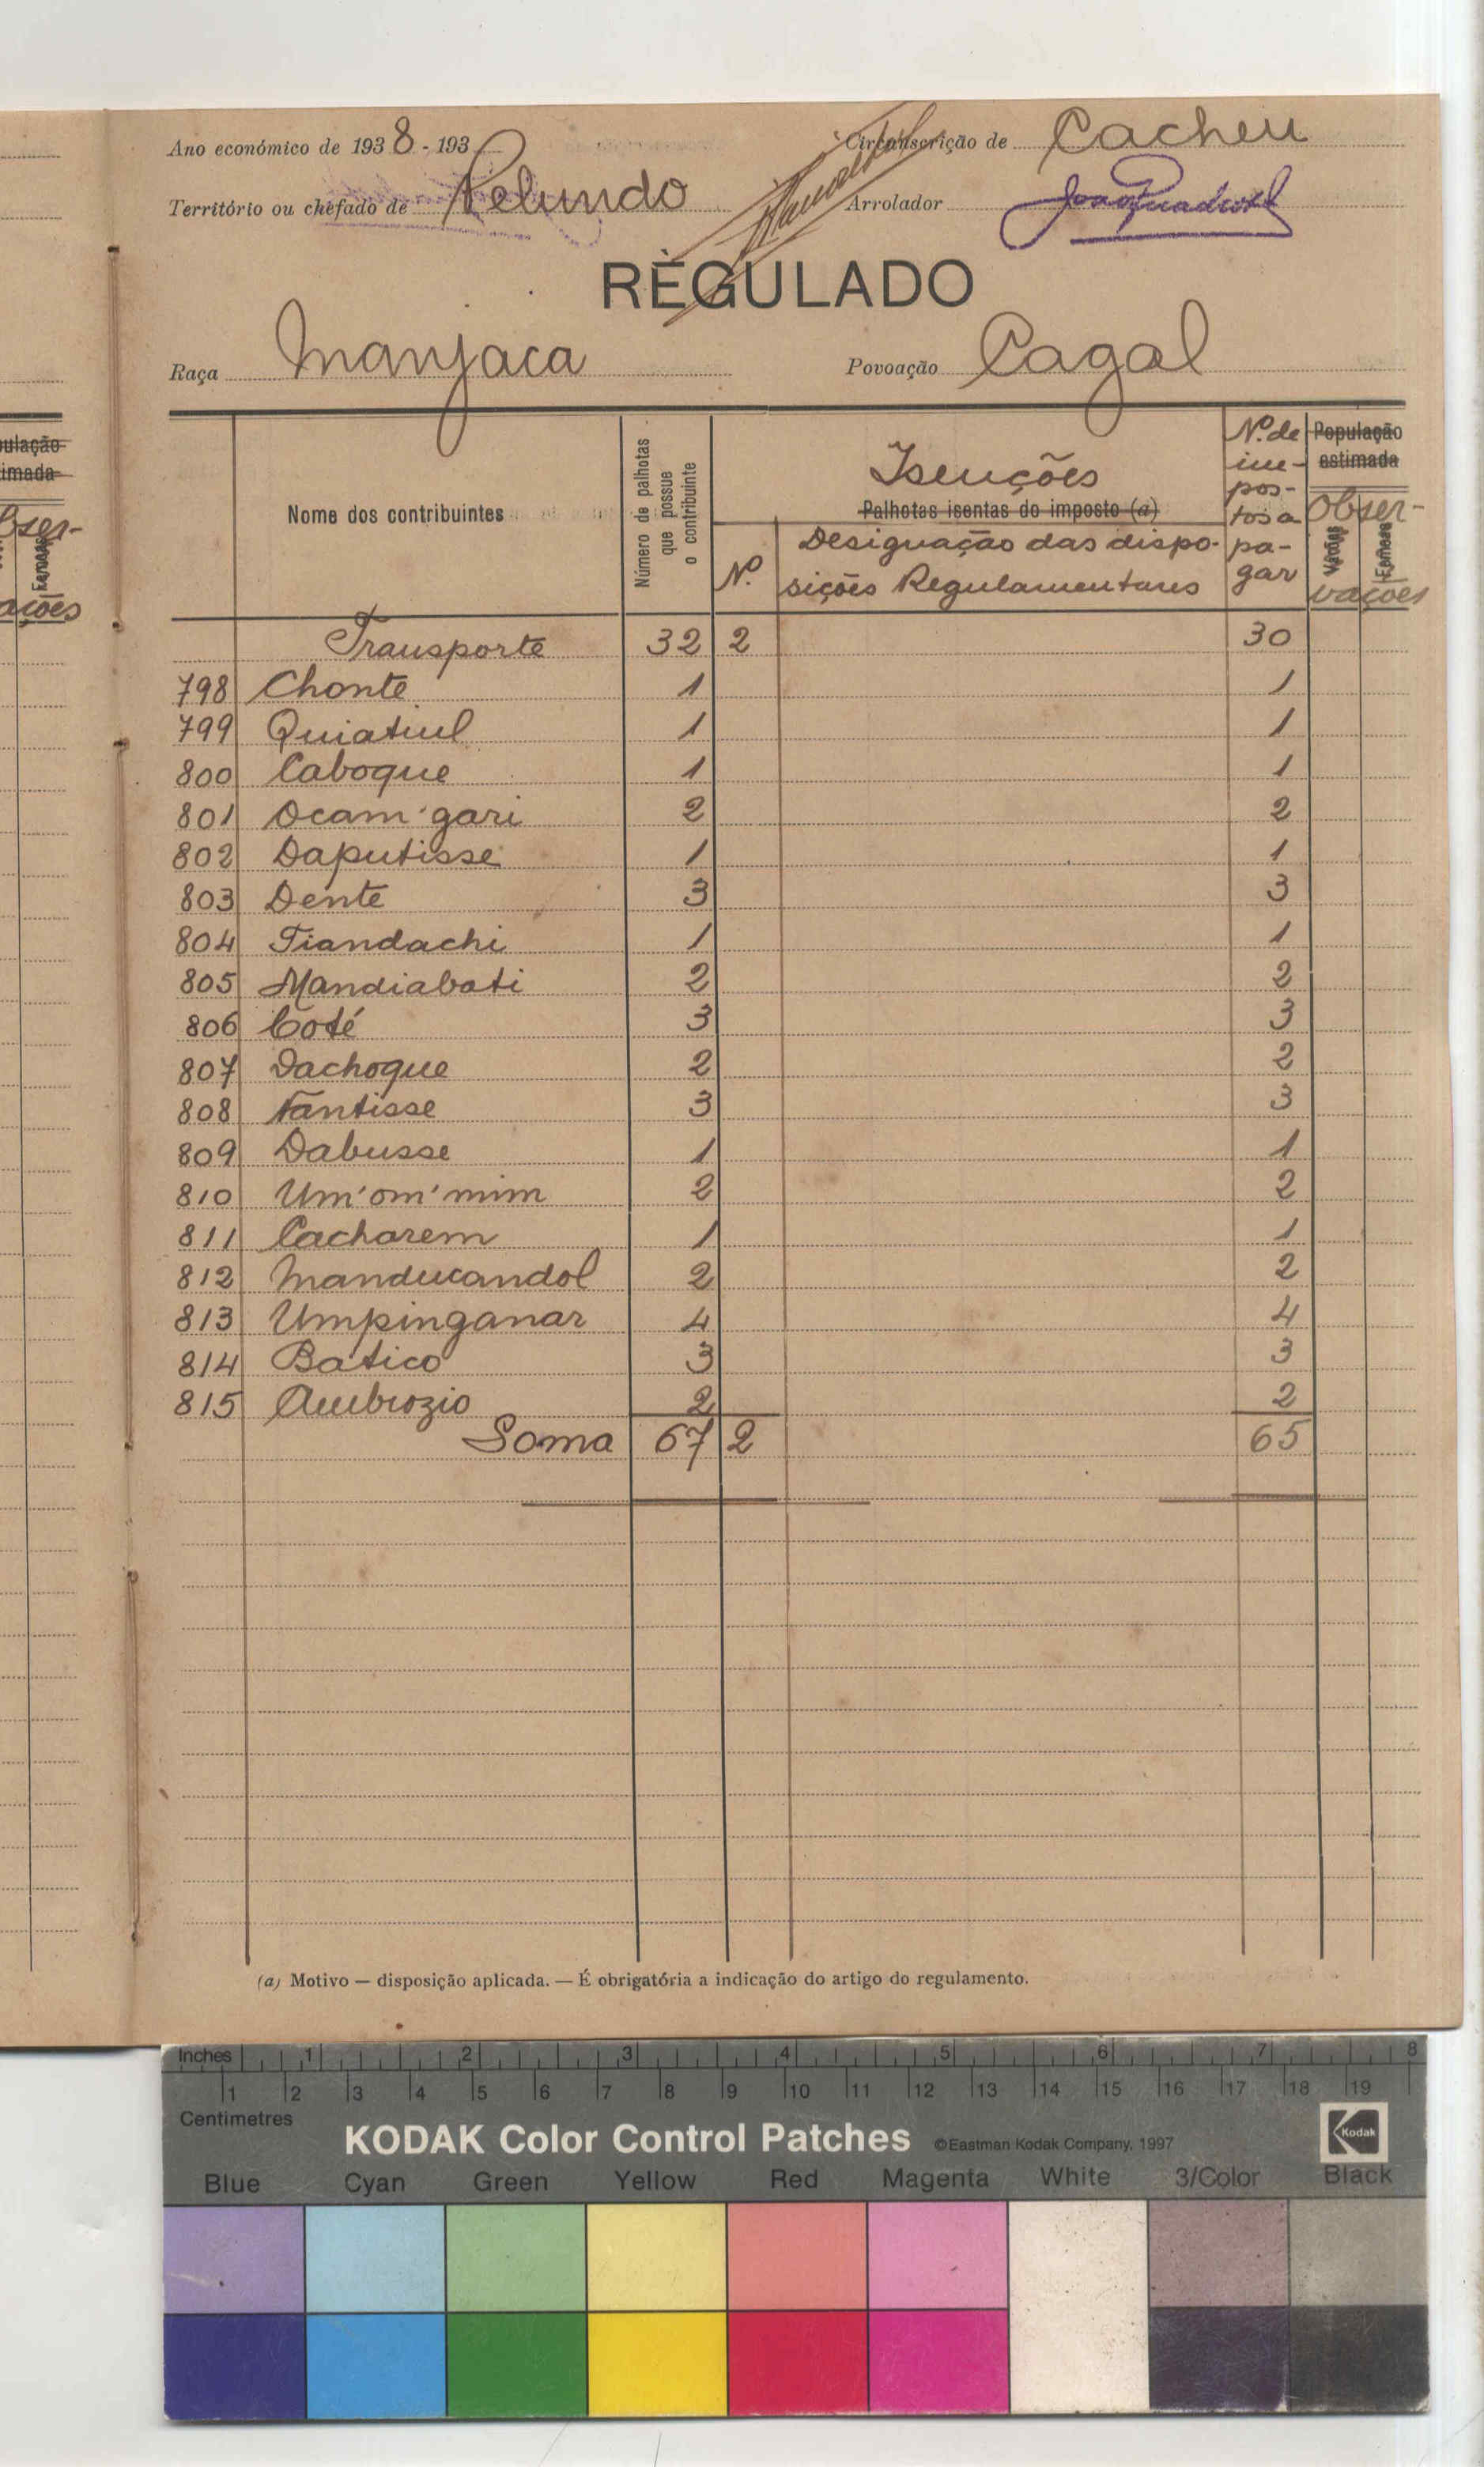 Ano económico de 1938-193
Circunscrição de Cacheu
Território ou chefado de Pelundo
Arrolador
REGULADO
Raça Manjaca
Povoação Cagal
Nome dos contribuintes
Número de palhotas que possue o contribuinte
Isenções
Palhotas isentas do imposto (a)
Nº
Designação das disposições Regulamentares
Nº de impostos a pagar
População estimada
Observações
Varões
Fêmeas
Transporte 32 2 30
798 Chonte 1 1
799 Quiatiul 1 1
800 Caboque 1 1
801 Ocam'gari 2 2
802 Daputisse 1 1
803 Dente 3 3
804 Tiandachi 1 1
805 Mandiabati 2 2
806 Coté 3 3
807 Dachoque 2 2
808 Fantisse 3 3
809 Dabusse 1 1
810 Um'om'mim 2 2
811 Cacharem 1 1
812 Manducandol 2 2
813 Umpinganar 4 4
814 Batico 3 3
815 Ambrozio 2 2
Soma 67 2 65
(a) Motivo — disposição aplicada. — É obrigatória a indicação do artigo do regulamento.
Inches 1 2 3 4 5 6 7 8
1 2 3 4 5 6 7 8 9 10 11 12 13 14 15 16 17 18 19
Centimetres
KODAK Color Control Patches ©Eastman Kodak Company, 1997 Kodak
Blue Cyan Green Yellow Red Magenta White 3/Color Black